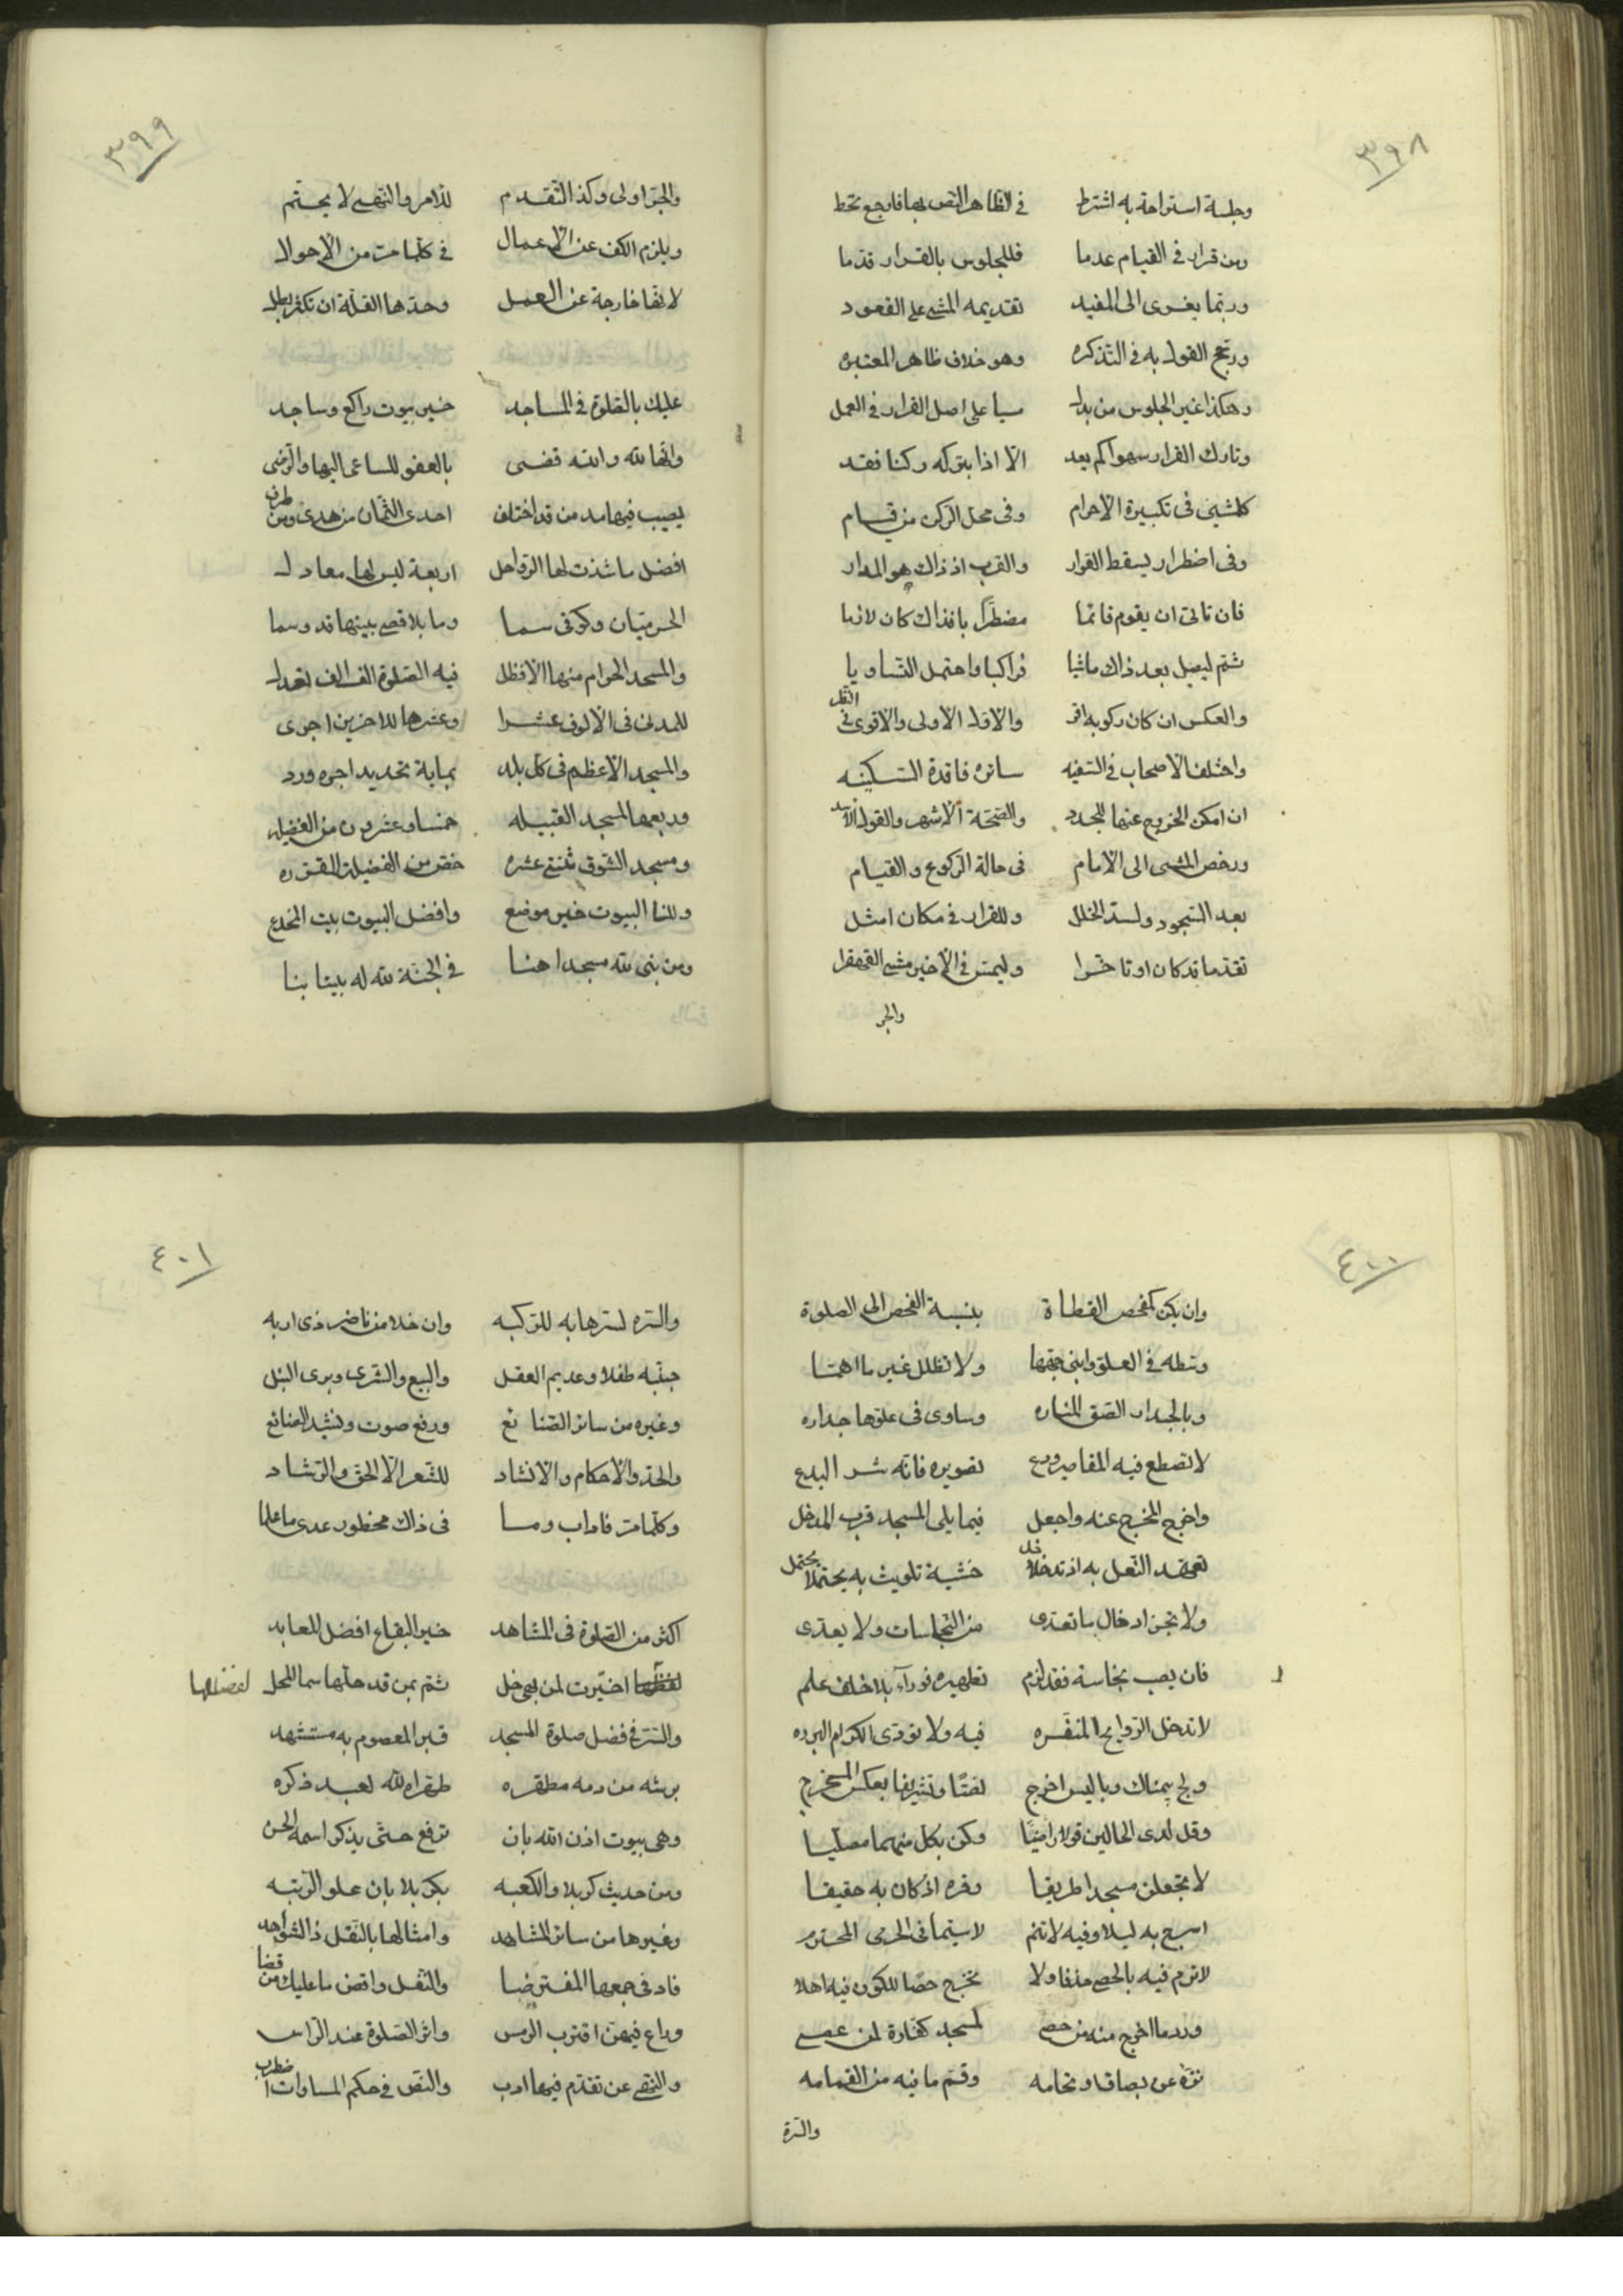 ٣٩٨
وجلسة استراحة به اشترط في الظاهر النص بها فارجع تحط
ومن قرار في القيام عدما فللجلوس بالقرار قدما
وربما يعزى الى المفيد تقديمه المشي على القعود
ورجح القول به في التذكره وهو خلاف ظاهر المعتبره
وهكذا غير الجلوس من بدل سيا على اصل القرار في العمل
وتارك القرار سهوا لم يعد الا اذا بتركه ركنا فقد
كالمشي في تكبيرة الاحرام وفي محل الركن من قيام
وفي اضطرار يسقط القرار والقرب اذ ذاك هو المدار
فان تاتى ان يقوم قائما مضطربا فذاك كان لازما
ثم ليصل بعد ذاك ماشيا فراكبا واحتمل التساويا
والعكس ان كان ركوبه اقر والاول الاولى والاقوى في النظر
واختلف الاصحاب في السفينه سائرة فاقدة السكينه
ان امكن الخروج عنها للجدد والصحة الاشهر والقول الاسد
ورخص المشي الى الامام في حالة الركوع والقيام
بعد السجود ولسد الخلل وللقرار في مكان امثل
تقدما قد كان او تاخرا وليمش في الاخير مشي القهقرا
والجر
٣٩٩
والجر اولى وكذا التقدم للامر والنهي لا يحتم
ويلزم الكف عن الاعمال في كلما مر من الاحوال
لانها خارجة عن العمل وحدها القلة ان تكثر بطل
عليك بالصلوة في المساجد خير بيوت راكع وساجد
وانها لله والله قضى بالعفو للساعي اليها والرضى
يصيب فيها مد من قد اختلف احدى الثمان من هدى ومن طرف
افضل ما شدت لها الرواحل اربعة ليس لها معادل
الحرميان وكوفي سما وما بالاقصى بينها قد وسما
والمسجد الحرام منها الافظل فيه الصلوة الف الف تعدل
للمدني في الالوف عشرا وعشرها للاخرين اجرى
والمسجد الاعظم في كل بلد بماية تحديد اجره ورد
وربعها لمسجد القبيله خمسا وعشرون من الفضيله
ومسجد السوق ثنتي عشره خص من الفضيلة المقرره
وللنسا البيوت خير موضع وافضل البيوت بيت المخدع
ومن بنى لله مسجدا هنا في الجنة لله له بيتا بنا
٤٠٠
وان يكن كمفحص القطاة بنسبة الفحص الى الصلوة
وسطه في العلو وابني جمها ولا تظلل غير ما اهمها
وبالجدار الصق المناره وساوى في علوها جداره
لا تصطع فيه المقاصير ودع تصويره فانه شر البدع
واخرج المخرج عنه واجعل فيما يلي المسجد قرب المدخل
تعهد النعل به اذ تدخل خشية تلويث به يحتمل
ولا تجز ادخال ما تعدى من النجاسات ولا يعدى
فان يصب نجاسة فقد لزم تطهيره فورا بلا خلف علم
لا تدخل الروايح المنفره فيه ولا توذى الكرام البرره
ولج بيمناك وباليسر اخرج لفتا وتشريفا بعكس المخرج
وقل لدى الحالين قولا راضيا وكن بكل منهما مصليا
لا تجعلن مسجدا طريقا وفره اذ كان به حقيقا
اسرج به ليلا وفيه لا تنم لا سيما في الحرمي المحترم
لا ترم فيه بالحصى حذفا ولا تخرج حصا للكون فيه اهلا
ورد ما اخرج منه من حصى لمسجد كفارة لمن عصى
نزه عن بصاق او نخامه وقم ما فيه من القمامه
والسرة
٤٠١
والسره لسترها به للركبه وان خلا من ناظر ذي اربه
جنبه طفلا وعديم العقل والبيع والشرى وبرى النبل
وغيره من سائر الصنائع ورفع صوت ونشيد الضائع
والحد والاحكام والانشاد للشعر الا الحق والرشاد
وكلما مر فاداب وما في ذاك محظور عدى ما علما
اكثر من الصلوة في المشاهد خير البقاع افضل المعابد
لفضلها اختيرت لمن بهن حل ثم بمن قد حلها سما المحل
لفضلها
والسر في فضل صلوة المسجد قبر المعصوم به مستشهد
برشة من دمه مطهره طهره الله لعبد ذكره
وهي بيوت اذن الله بان ترفع حتى يذكر اسمه الحسن
ومن حديث كربلا والكعبه بكربلا بان علو الرتبه
وغيرها من سائر المشاهد وامثالها بالنقل ذا الشواهد
فاد في جمعها المفترضا والنفل واقض ما عليك من قضا
وراع فيهن اقتراب الرمس واثر الصلوة عند الراس
والنهي عن تقدم فيها ادب والنص في حكم المساوات اضطرب